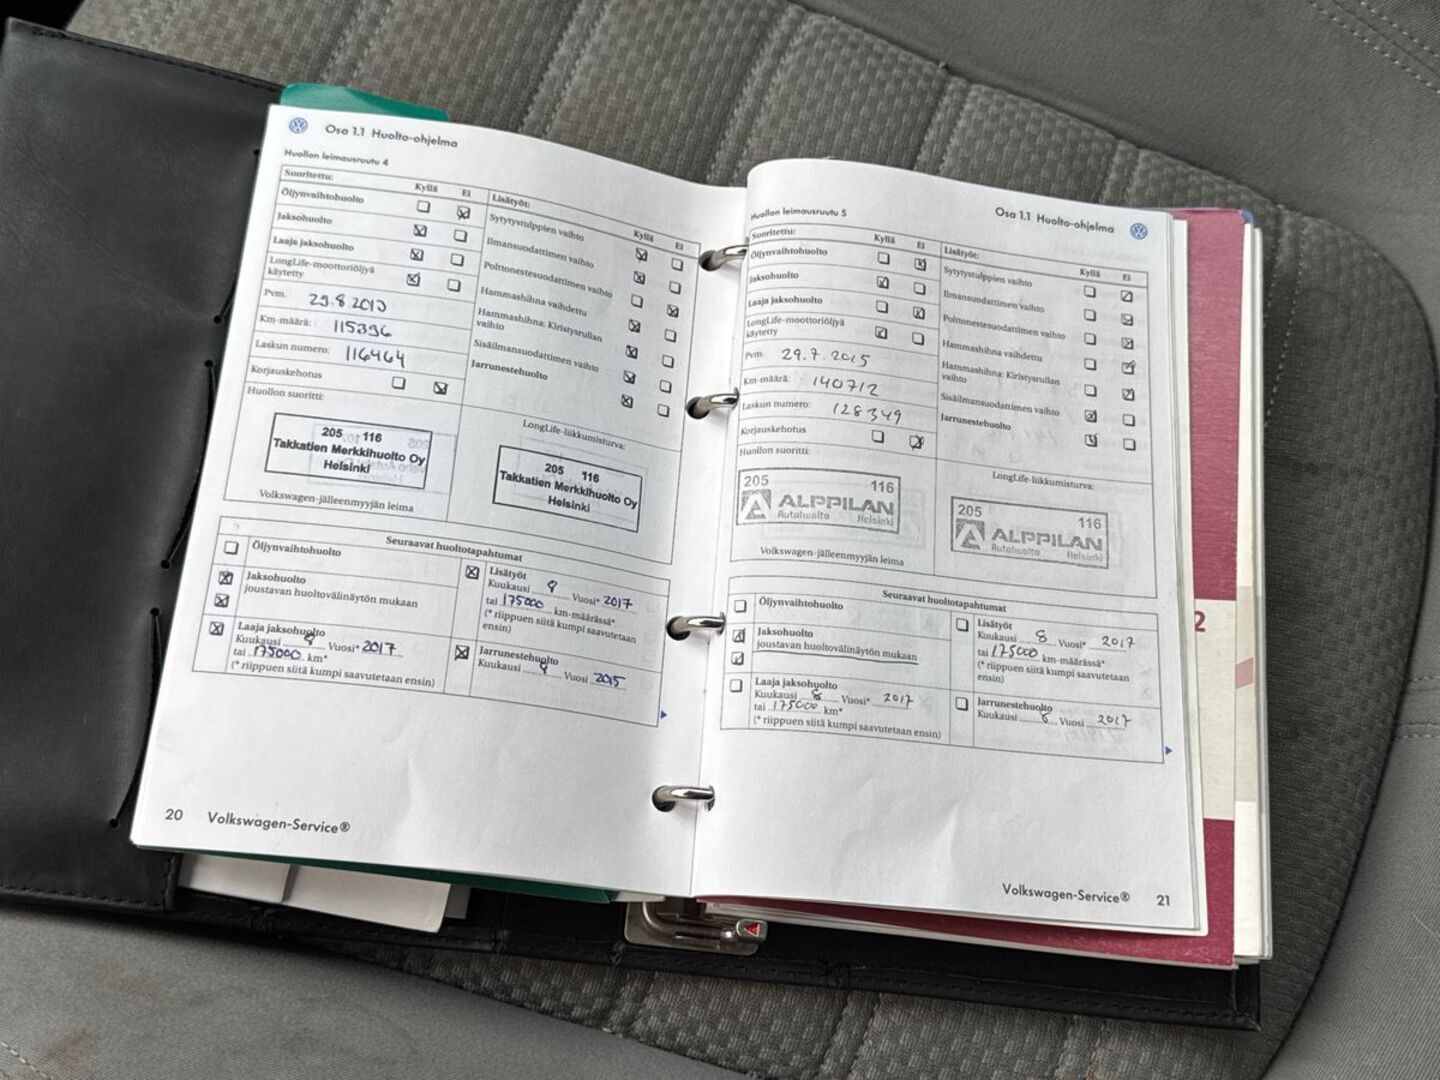 Osa 1.1 Huolto-ohjelma
Huollon leimausruutu 4
Suoritettu:
Kyllä Ei
Öljynvaihtohuolto
Jaksohuolto
Laaja jaksohuolto
LongLife-moottoriöljyä
käytetty
Pvm. 29.8.2013
Km-määrä: 115336
Laskun numero: 116464
Korjauskehotus
Huollon suoritti:
Lisätyöt:
Kyllä Ei
Sytytystulppien vaihto
Ilmansuodattimen vaihto
Polttonestesuodattimen vaihto
Hammashihna vaihdettu
Hammashihna: Kiristysrullan
vaihto
Sisäilmansuodattimen vaihto
Jarrunestehuolto
205 116
Takkatien Merkkihuolto Oy
Helsinki
Volkswagen-jälleenmyyjän leima
LongLife-liikkumisturva:
205 116
Takkatien Merkkihuolto Oy
Helsinki
Seuraavat huoltotapahtumat
Öljynvaihtohuolto
Jaksohuolto
joustavan huoltovälinäytön mukaan
Laaja jaksohuolto
Kuukausi 8 Vuosi* 2017
tai 175000 km*
(* riippuen siitä kumpi saavutetaan ensin)
Lisätyöt
Kuukausi 8 Vuosi* 2017
tai 175000 km-määrässä*
(* riippuen siitä kumpi saavutetaan
ensin)
Jarrunestehuolto
Kuukausi Vuosi 2015
20 Volkswagen-Service®
Osa 1.1 Huolto-ohjelma
Huollon leimausruutu 5
Suoritettu:
Kyllä Ei
Öljynvaihtohuolto
Jaksohuolto
Laaja jaksohuolto
LongLife-moottoriöljyä
käytetty
Pvm. 29.7.2015
Km-määrä: 140712
Laskun numero: 128349
Korjauskehotus
Huollon suoritti:
Lisätyöt:
Kyllä Ei
Sytytystulppien vaihto
Ilmansuodattimen vaihto
Polttonestesuodattimen vaihto
Hammashihna vaihdettu
Hammashihna: Kiristysrullan
vaihto
Sisäilmansuodattimen vaihto
Jarrunestehuolto
205 116
ALPPILAN
Autohuolto Helsinki
Volkswagen-jälleenmyyjän leima
LongLife-liikkumisturva:
205 116
ALPPILAN
Autohuolto Helsinki
Seuraavat huoltotapahtumat
Öljynvaihtohuolto
Jaksohuolto
joustavan huoltovälinäytön mukaan
Laaja jaksohuolto
Kuukausi 8 Vuosi* 2017
tai 175000 km*
(* riippuen siitä kumpi saavutetaan ensin)
Lisätyöt
Kuukausi 8 Vuosi* 2017
tai 175000 km-määrässä*
(* riippuen siitä kumpi saavutetaan
ensin)
Jarrunestehuolto
Kuukausi 8 Vuosi 2017
Volkswagen-Service® 21
2